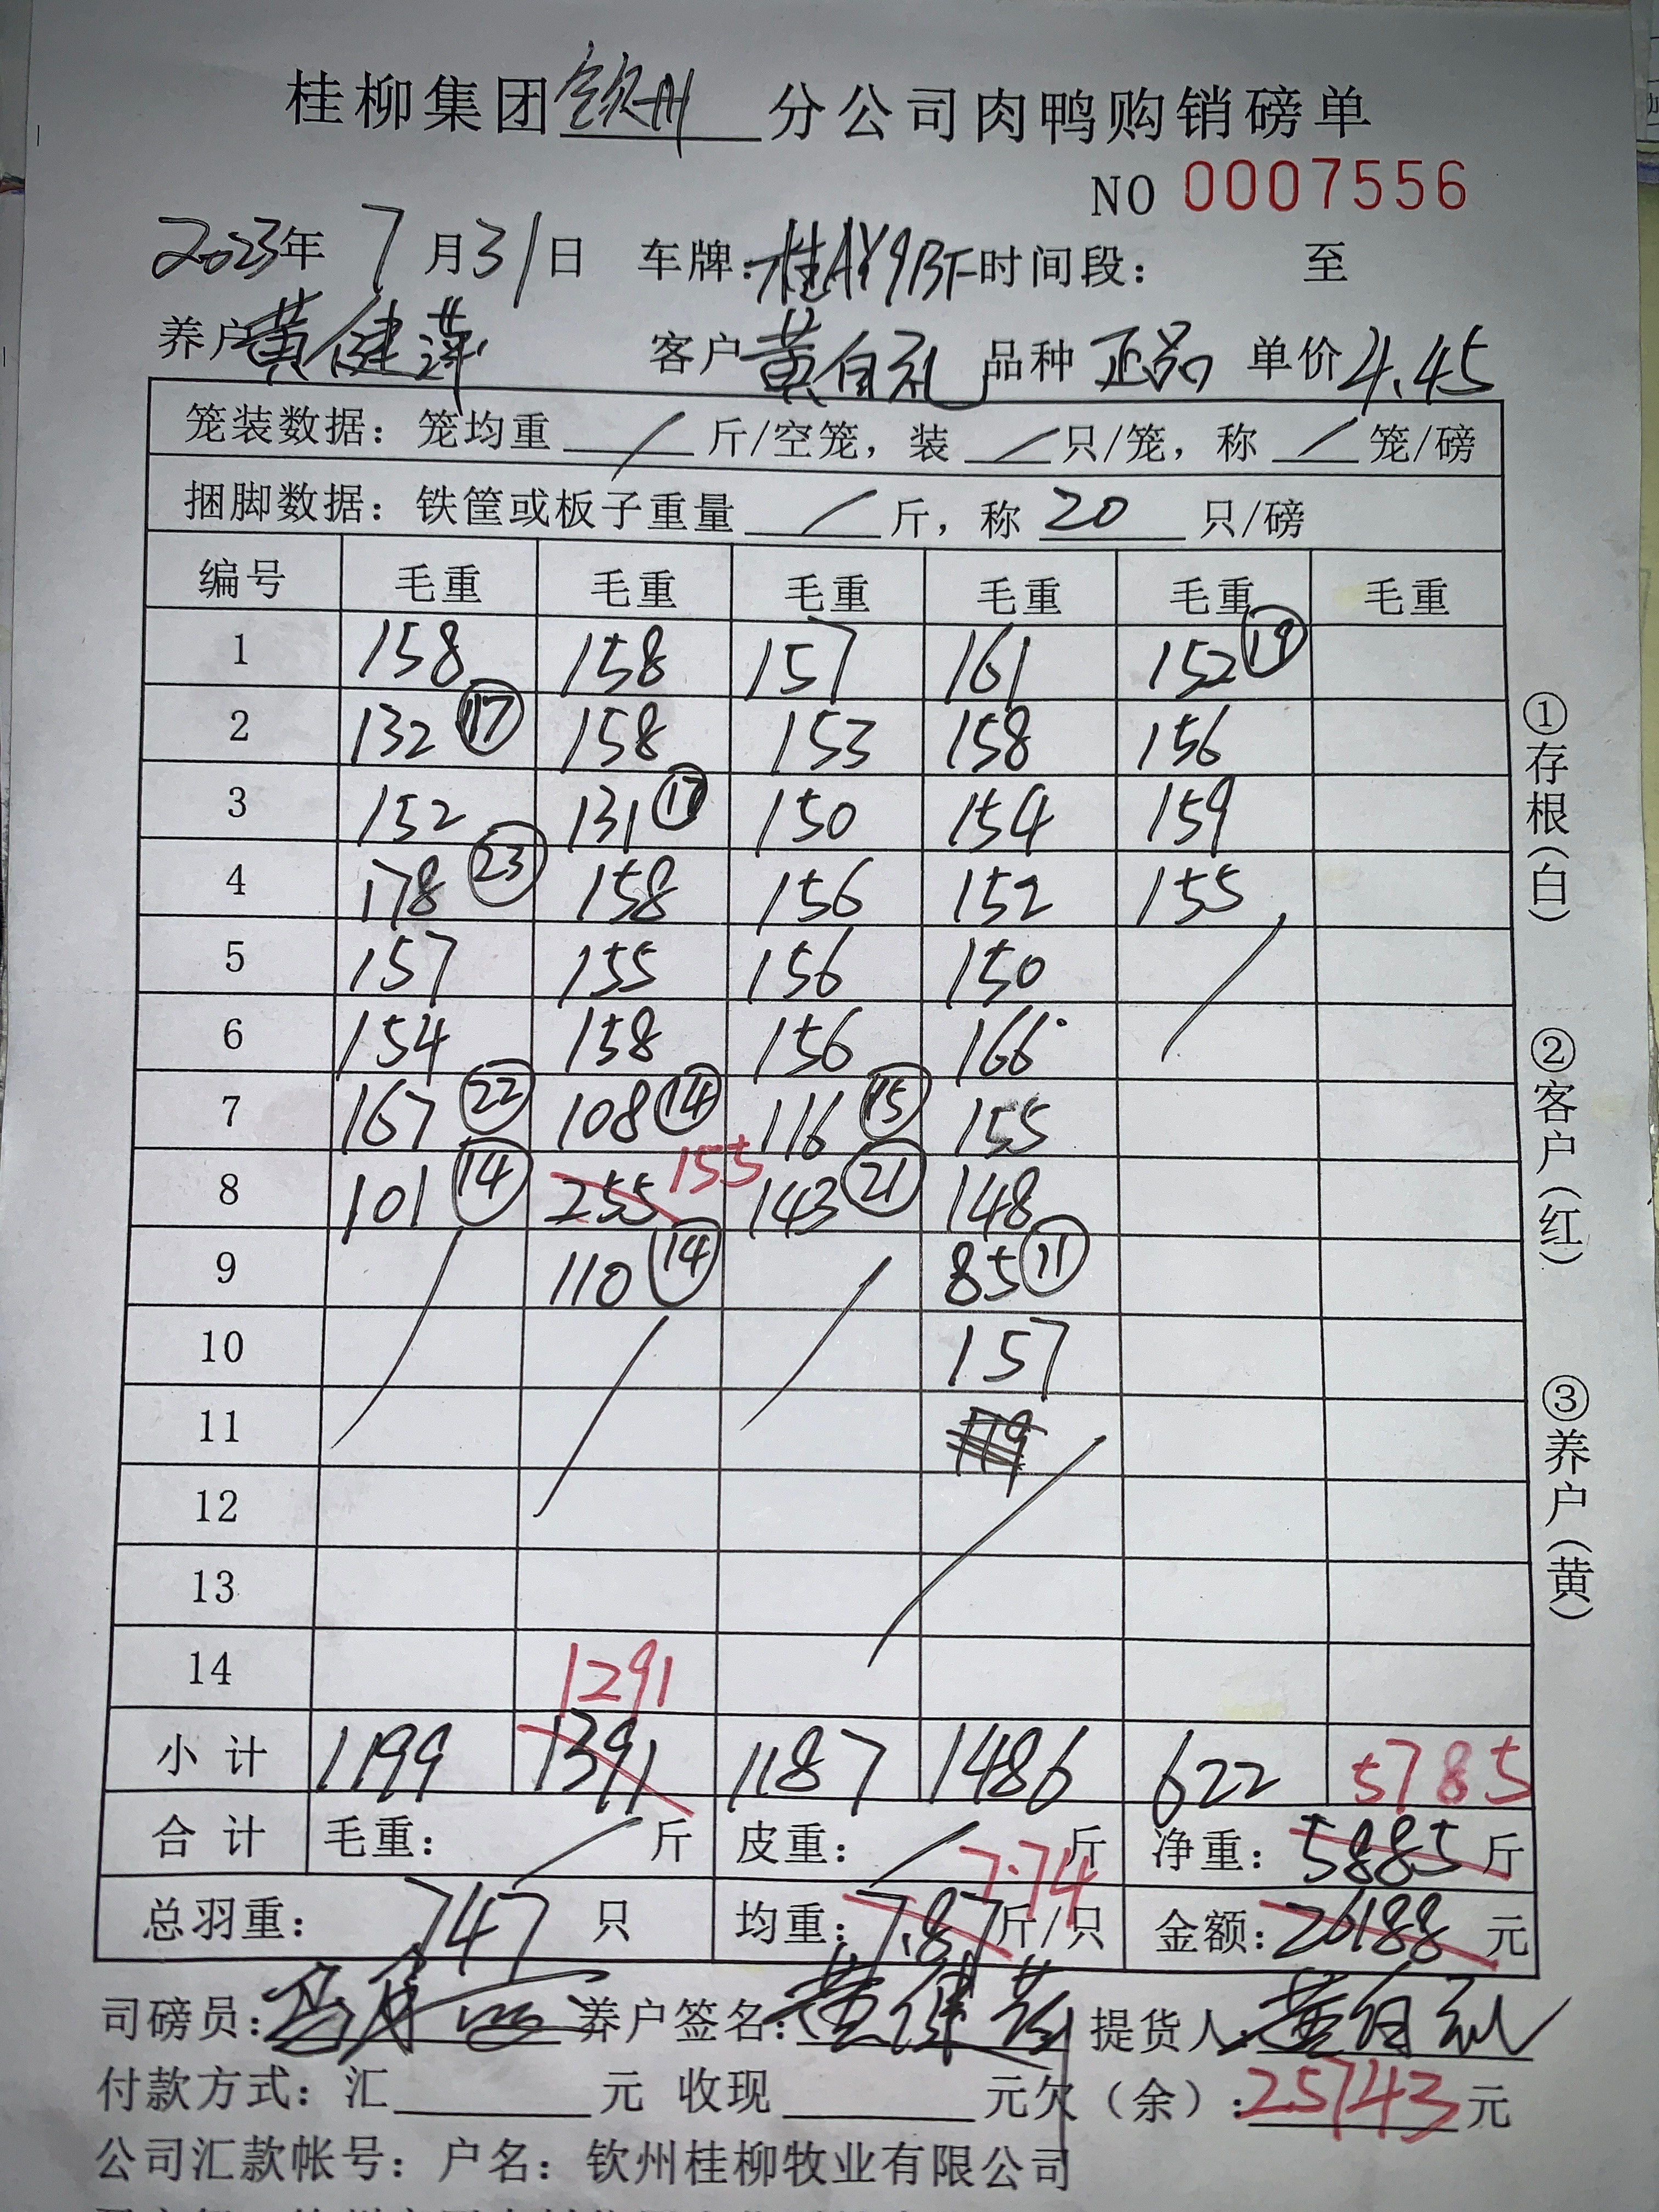 桂柳集团钦州分公司肉鸭购销磅单
NO 0007556
2023年 7月31日 车牌:桂AY9BF时间段: 至
养户黄健萍 客户黄自礼 品种 正品 单价4.45
笼装数据: 笼均重 / 斤/空笼, 装 / 只/笼, 称 / 笼/磅
捆脚数据: 铁筐或板子重量 / 斤, 称 20 只/磅
编号 毛重 毛重 毛重 毛重 毛重 毛重
1 158 158 157 161 152 ⑲
2 132 ⑰ 158 153 158 156
3 152 131 ⑰ 150 154 159
4 178 ㉓ 158 156 152 155
5 157 155 156 150
6 154 158 156 166
7 167 ㉒ 108 ⑭ 116 ⑮ 155
8 101 ⑭ 255 155 143 ㉑ 148
9 110 ⑭ 85 ⑪
10 157
11
12
13
14 1291
小计 1199 1391 1187 1486 622 5785
合计 毛重: / 斤 皮重: / 斤 净重: 5885 斤
总羽重: 747 只 均重: 7.87 7.74 斤/只 金额: 26188 元
司磅员: 养户签名: 黄健萍 提货人: 黄自礼
付款方式: 汇 元 收现 元欠(余): 25743 元
公司汇款帐号: 户名: 钦州桂柳牧业有限公司
①存根(白)
②客户(红)
③养户(黄)